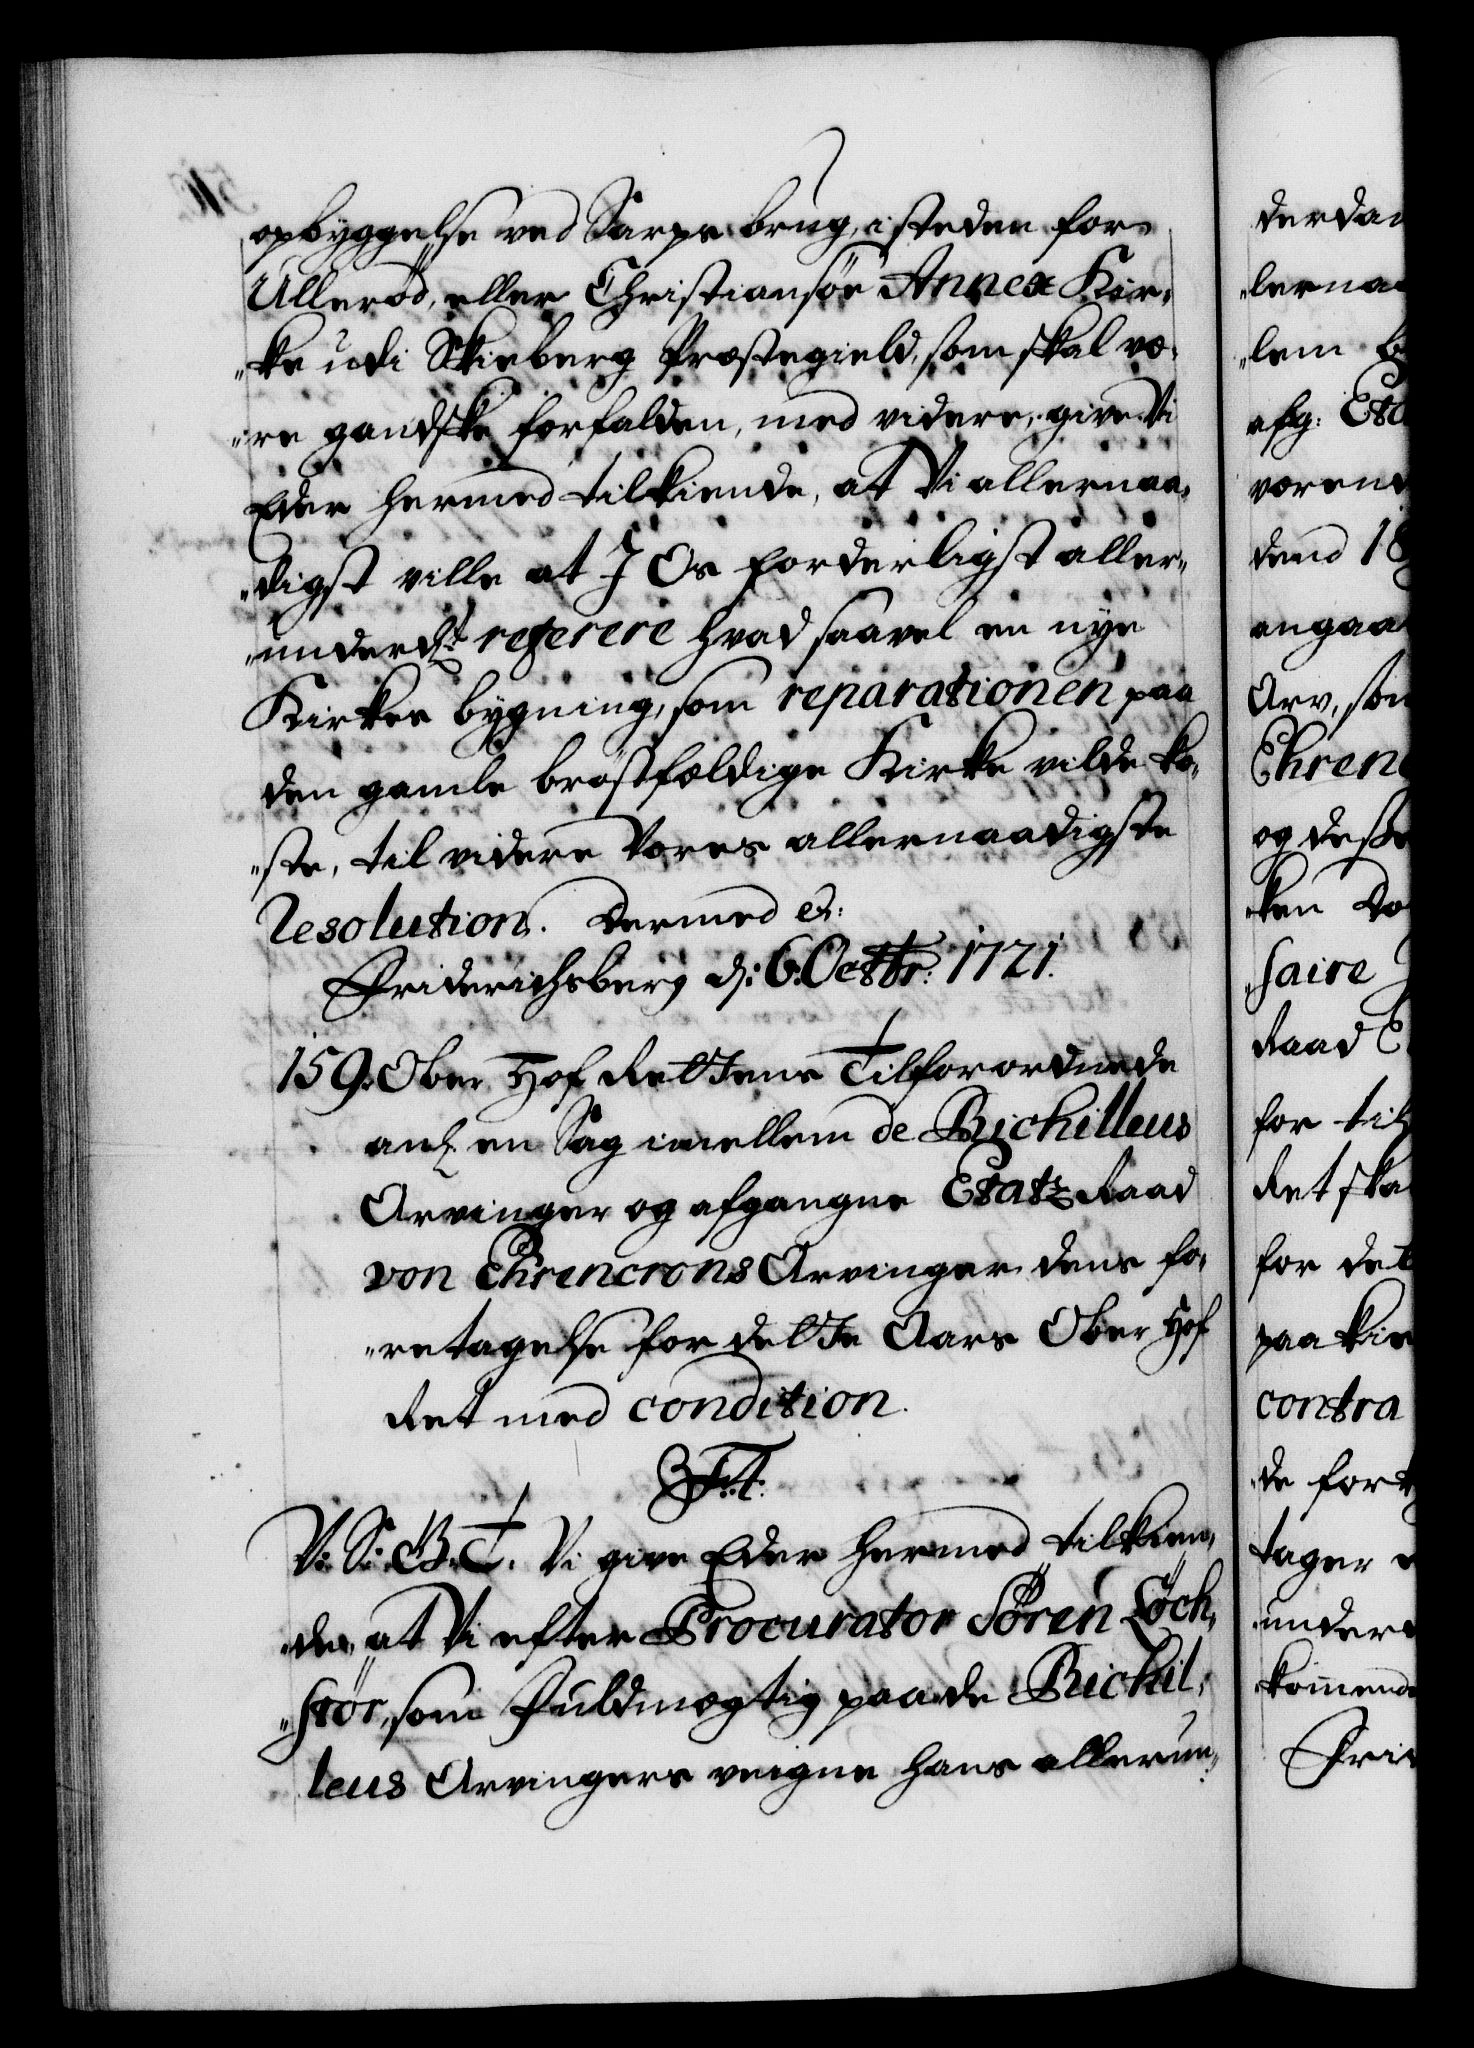 opbyggelse ved Sarps brug, i steden for
Ullerød, eller Christiansøe Annex Kir,
"ke udi Skieberg Præstegield, som skal væ,
"re gandske forfalden, med videre, give Vi
Eder hermed tilkiende, at Vi allernaa,
"digst ville at I Os forderligst aller,
"underd:t referere hvad saavel en nye
Kirkes bygning, som reparationen paa
den gamle brøstfældige Kirke vilde ko,
"ste, til videre Vores allernaadigste
Resolution. Dermed &:
Friderichsberg d: 6. Octbr: 1721.
159. Ober Hof Rettens Tilforordnede
anl: en Sag imellem de Richilleus
Arvinger og afgangne Etatz Raad
von Ehrencrons Arvinger dens fo,
"retagelse for dette Aars Ober Hof
Ret med condition.
F: 4.
V: S: G: T. Vi give Eder hermed tilkien,
"de, at Vi efter Procurator Søren Loch,
"stør, som Fuldmægtig paa de Richil,
leus Arvingers veigne hans allerun,
derdan
"lernaa
"lem
afg: Eta
værend
dend 18
angaa
Arv, som
Ehren
og desse
"ken
"saire
Raad
for til
Ret ska
for det
paakie
contra
"de for
tager
"under
"kommend
Frid